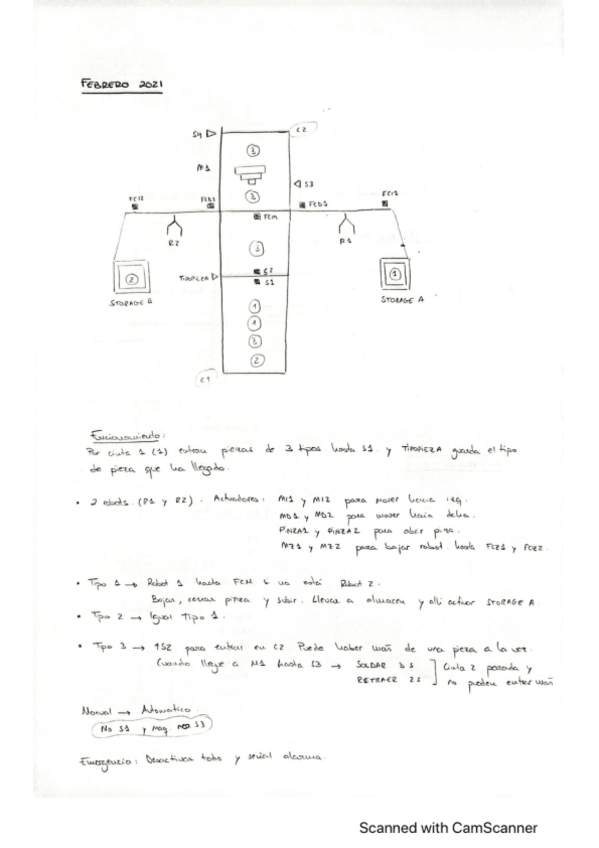 FEBRERO 2021
S4
C2
3
M1
S3
3
FCI2
FCD2
FCI1
FCD1
FCM
R2
R1
3
2
TIPOPIEZA
S2
S1
1
STORAGE B
STORAGE A
1
1
3
2
C1
Funcionamiento:
Por cinta 1 (1) entran piezas de 3 tipos hasta S1. y TIPOPIEZA guarda el tipo
de pieza que ha llegado.
• 2 robots. (R1 y R2). Actuadores: MI1 y MI2 para mover hacia izq.
MD1 y MD2 para mover hacia dcha.
PINZA1 y PINZA2 para abrir pinza.
MZ1 y MZ2 para bajar robot hasta FCZ1 y FCZ2.
• Tipo 1 → Robot 1 hasta FCM si no está Robot 2.
Bajar, cerrar pinza y subir. Llevar a almacén y allí activar STORAGE A.
• Tipo 2 → Igual Tipo 1.
• Tipo 3 → ↑S2 para entrar en C2 Puede haber más de una pieza a la vez.
Cuando llegue a M1 hasta S3 → SOLDAR 3 s ] Cinta 2 parada y
RETRAER 2 s ] no pueden entrar más
Manual → Automático.
No S1 y S3
Emergencia: Desactivar todo y señal alarma.
Scanned with CamScanner